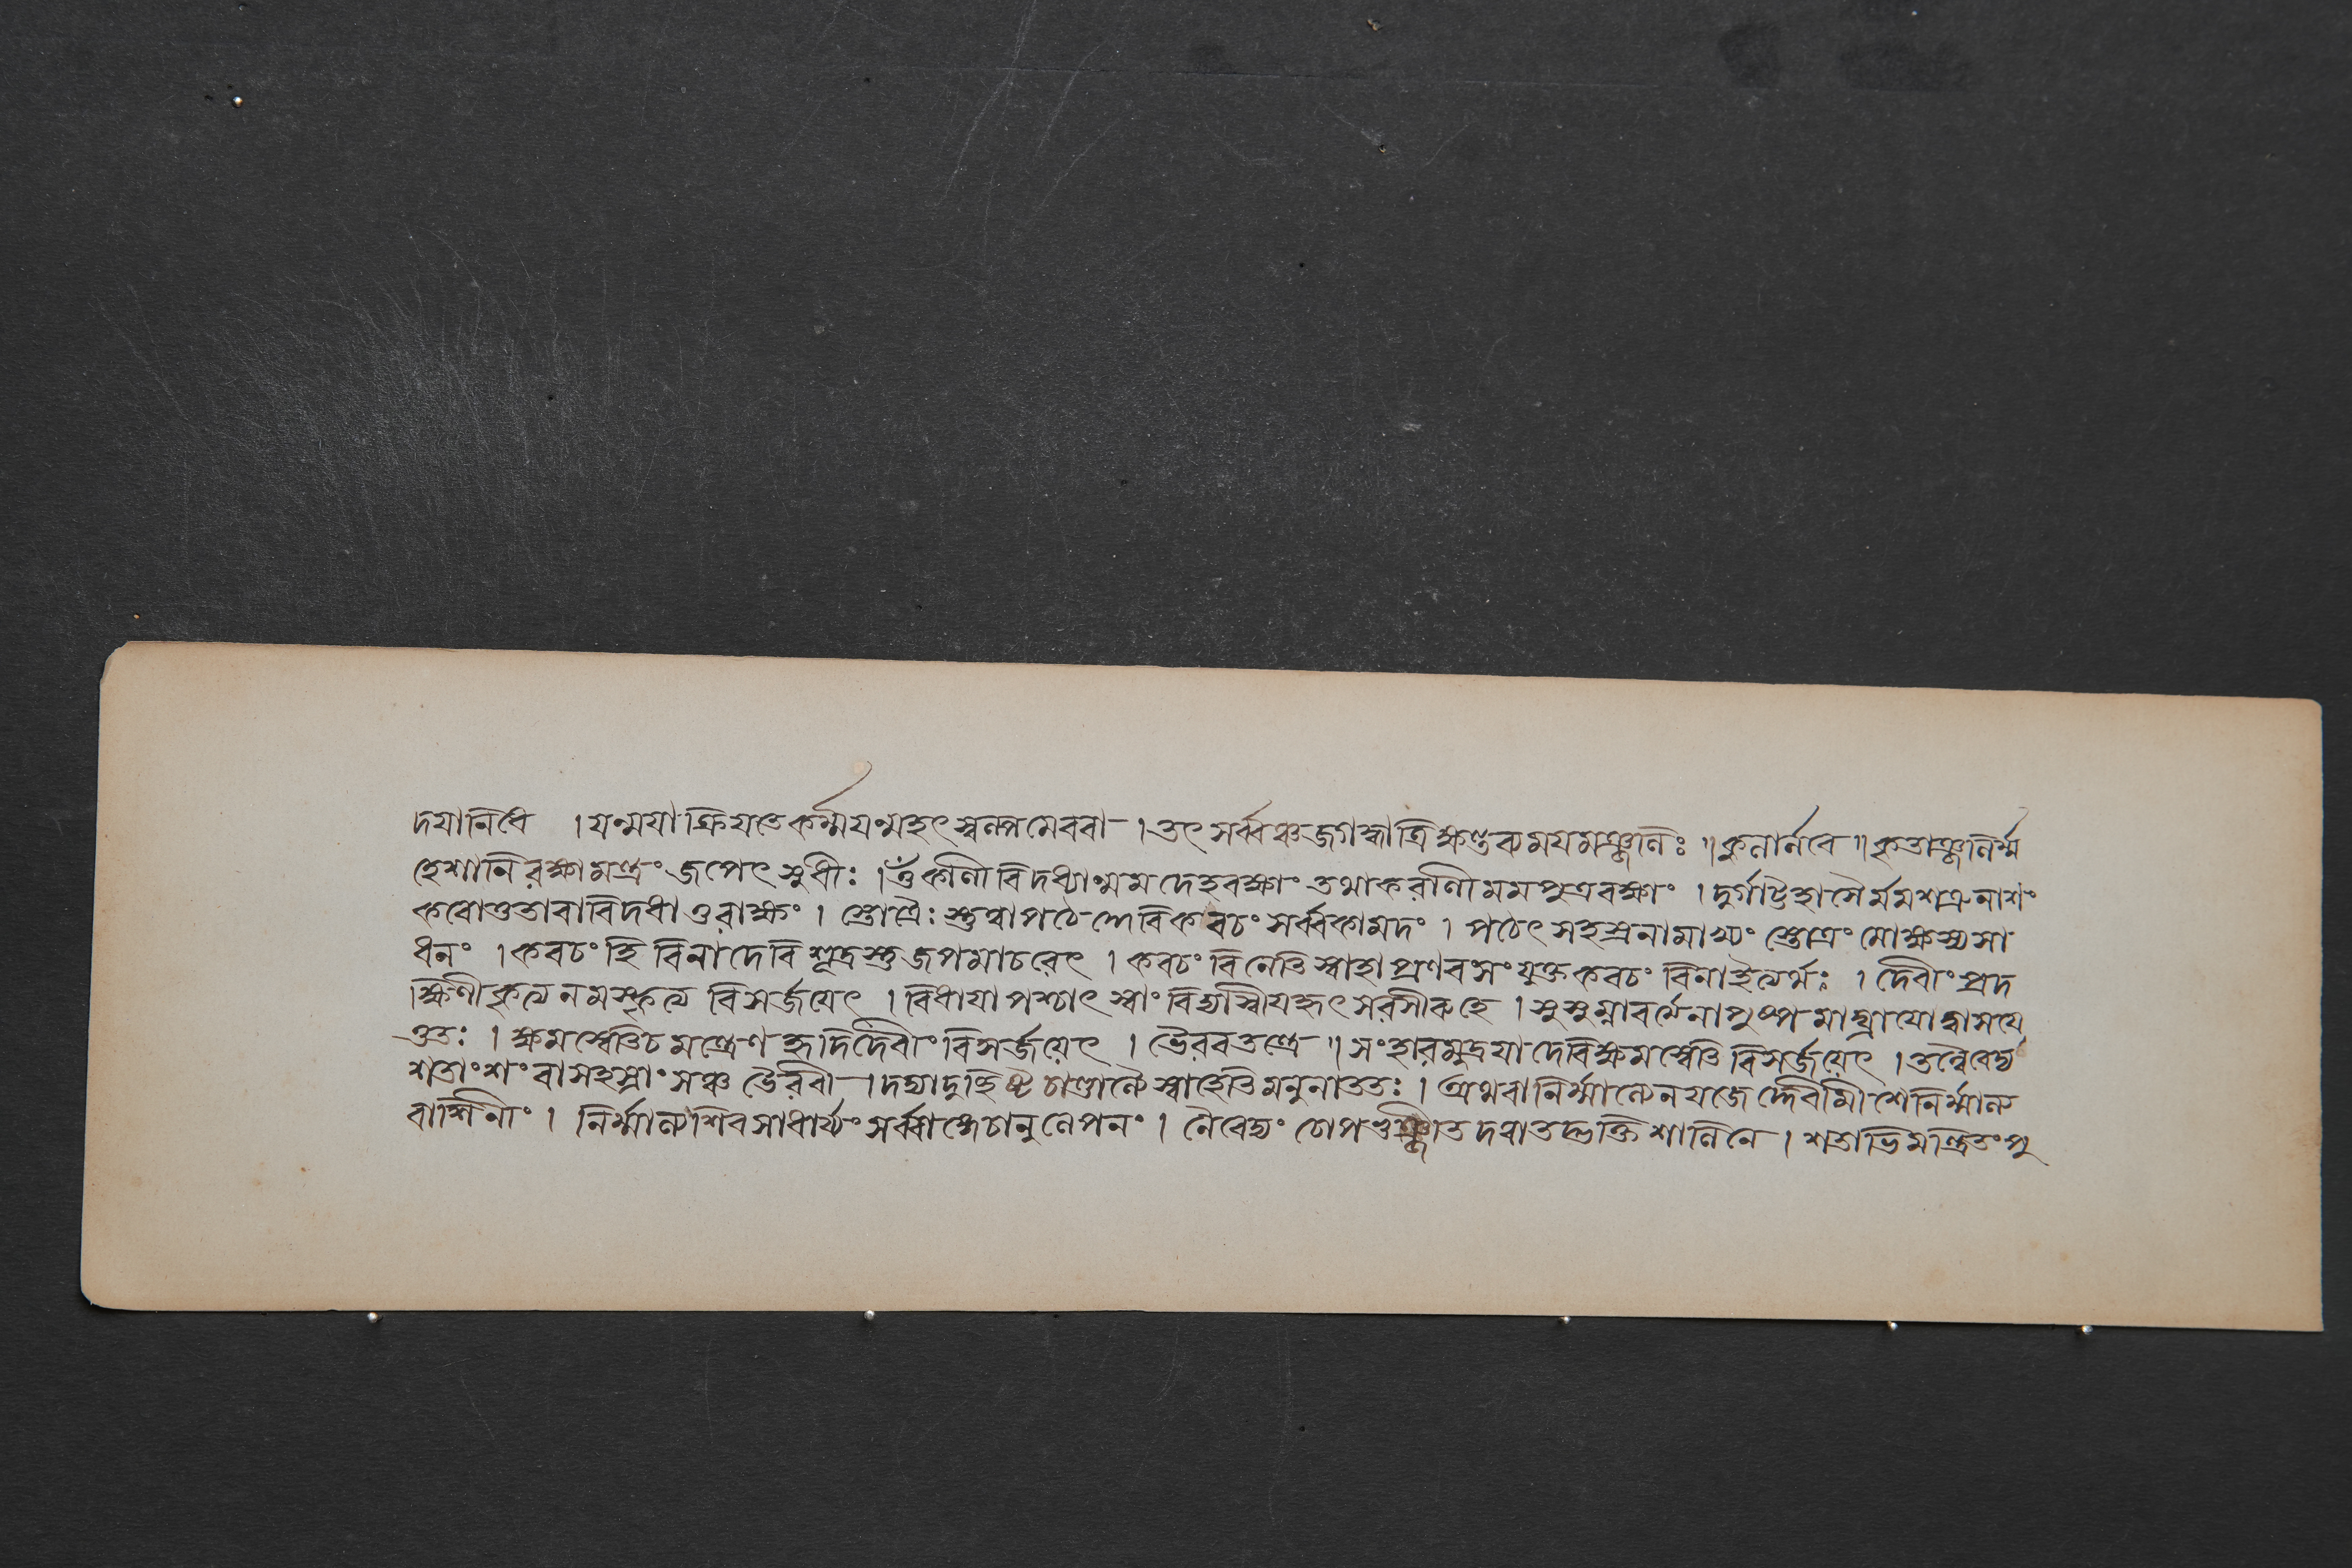 দয়ানিধে । যন্ময়া ক্রিয়তে কর্ম্ম যন্মহৎ স্বল্পমেব বা । তৎ সর্ব্বঞ্চ জগদ্ধাত্রি ক্ষন্তব্যময়মঞ্জলিঃ ॥ কুলার্নবে ॥ কৃতাঞ্জলির্ম্ম
হেশানি রক্ষামন্ত্রং জপেৎ সুধীঃ । ওঁ কালী বিদধ্যান্মম দেহরক্ষাং তথা করালী মম পুত্ররক্ষাং । দুর্গাট্টহাসৈর্মম শত্রুনাশং
করোতু তারা বিদধাতু রাক্ষং । স্তোত্রৈঃ স্তুত্বা পঠেদ্দেবি কবচং সর্ব্বকামদং । পঠেৎ সহস্রনামাখ্যং স্তোত্রং মোক্ষস্য সা
ধনং । কবচং হি বিনা দেবি শূদ্রস্তু জপমাচরেৎ । কবচং বিনেতি স্বাহাপ্রণবসংযুক্তকবচং বিনা ইত্যর্থঃ । দেবীং প্রদ
ক্ষিণীকৃত্য নমস্কৃত্য বিসর্জয়েৎ । বিধায়া পশ্চাৎ স্বাং বিদ্যা স্বীয়হৃৎসরসীরুহে । সুসুম্নাবর্ত্মনা পুষ্পমাঘ্রায়োদ্বাসয়ে
ত্ততঃ । ক্ষমস্বেতি চ মন্ত্রেণ হৃদি দেবীং বিসর্জয়েৎ । ভৈরবতন্ত্রে ॥ সংহারমুদ্রয়া দেবি ক্ষমস্বেতি বিসর্জয়েৎ । তন্নৈবেদ্য
শতাংশং বা সহস্রাংসঞ্চ ভৈরবী । দদ্যাদুচ্ছিষ্ট চাণ্ডাল্যৈ স্বাহেতি মনুনা ততঃ । অথবা নির্ম্মাল্যেন যজেদ্দেবীমীশে নির্ম্মাল্য
বাসিনীং । নির্ম্মাল্য শিরসা ধার্য্যং সর্ব্বাঙ্গে চানুলেপনং । নৈবেদ্যং চোপভুঞ্জীত দত্বা তদ্ভক্তিশালিনে । শতাভিমন্ত্রিতং পু